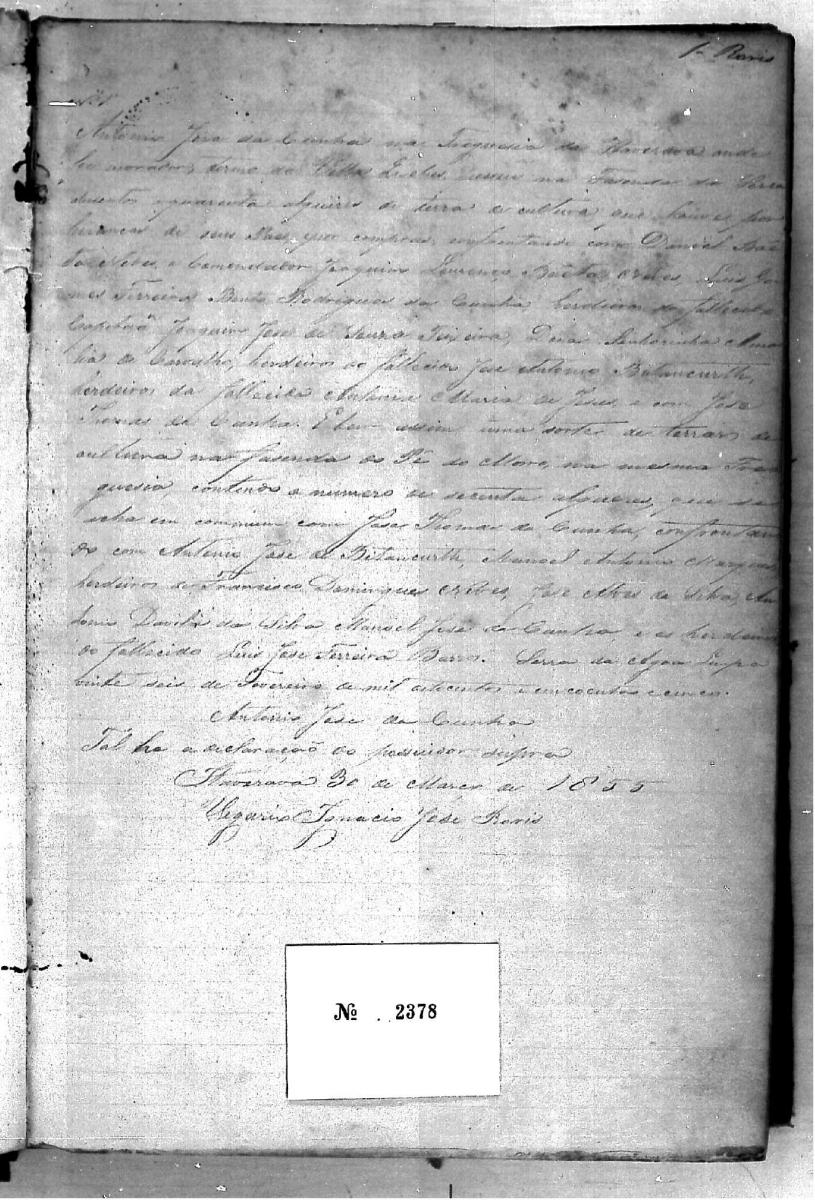 1 - Roris
N. 1
Antonio Jose da Cunha na Freguesia de Itaverava onde
he morador, termo da Villa Queluz, possue na Fasenda da Serra
dusentos e quarenta alqueires de terra de cultura, que houve por
herancas de seus Pais, e por compras, confrontando com Daniel Baê
ta Neves, o Comendador Joaquim Lourenço Baêta Neves, Luis Go
mes Ferreira, Bento Rodrigues da Cunha, herdeiros do fallecido
Capitaõ Joaquim Jose de Souza Teixeira, Dona Senhorinha
de Carvalho, herdeiros do fallecido Jose Antonio Bitancurth,
herdeiros da fallecida Antonia Maria de Jesus, e com Jose
Thomas da Cunha. E bem assim uma sorte de terras de
cultura na fasenda do Pé do Morro, na mesma Fre
guesia contendo o numero de secenta alqueires, que se
acha em commum com Jose Thomas da Cunha, confrontan
do com Antonio Jose de Bitancurth, Manoel Antonio Marques,
herdeiros de Francisco Domingues Neves, Jose Alves da Silva, An
tonio da Silva Manoel Jose da Cunha e os herdeiros
do fallecido Luis Jose Ferreira Barros. Serra da Agoa Limpa
vinte seis de Fevereiro de mil oitocentos e cincoenta e cinco.
Antonio Jose da Cunha
Tal he a declaração do possuidor supra
Itaverava 30 de Março de 1855
Vegario Ignacio Jose Roris
№ 2378